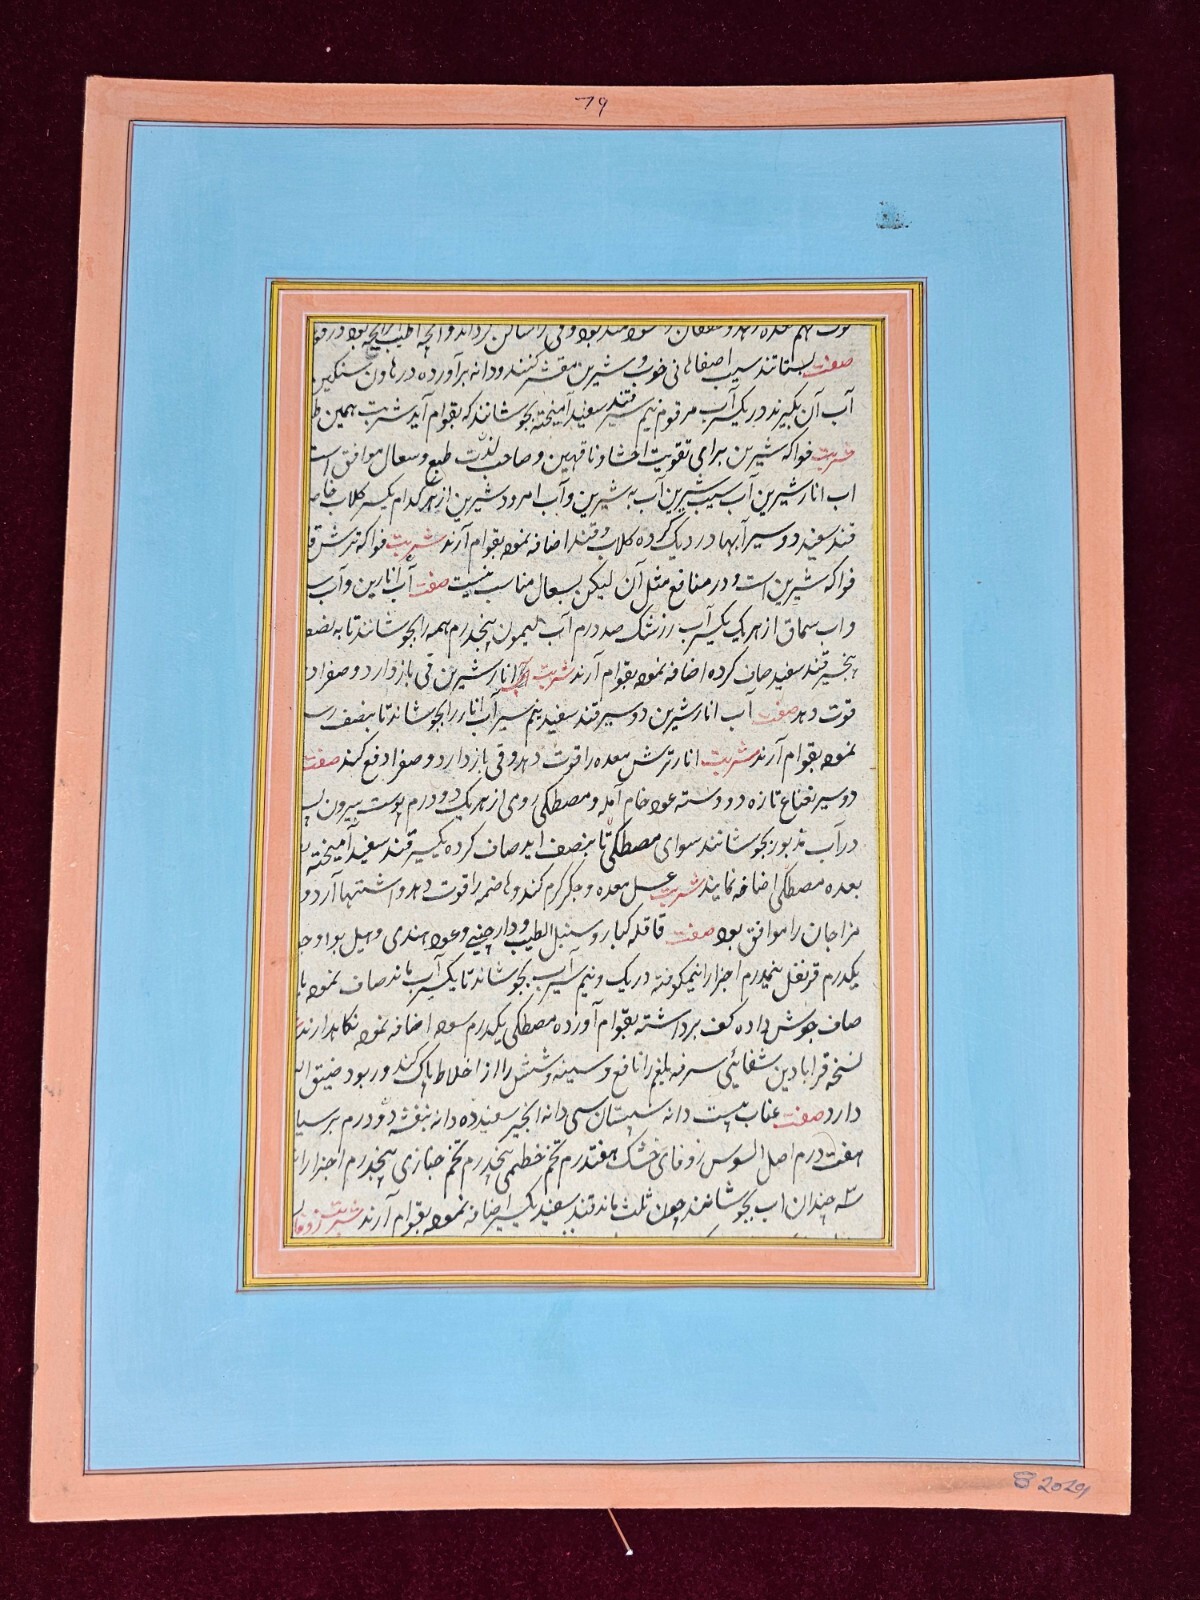 ٦٩
صفت بستانند سیب اصفاهانی خوب و شیرین مقشر کنند و دانه برآورده در هاون سنگین
آب آن بگیرند در یکسیر آب مرقوم نیم سیر قند سفید آمیخته بجوشانند که بقوام آید شربت همین
شربت فواکه شیرین برای تقویت احشا و ناقهین و صاحب لذت طبع و سعال موافق است
اب انار شیرین آب سیب شیرین آب به شیرین و آب امرود شیرین از هر کدام یکسیر کلاب
قند سفید دو سیر آبها در دیک کرده کلاب و قند اضافه نموده بقوام آرند شربت فواکه ترش
فواکه شیرین است و در منافع مثل آن لیکن بسعال مناسب نیست صفت آب انارین و آب
و اب سماق از هر یک یکسیر آب زرشک صد درم آب لیمون پنجدرم همه را بجوشانند تا به نصف
پنجسیر قند سفید صاف کرده اضافه نموده بقوام آرند شربت انار شیرین قی باز دارد و صفرا
قوت دهد صفت آب انار شیرین دو سیر قند سفید نیم سیر آب انار را بجوشاند تا بنصف
نموده بقوام آرند شربت انار ترش معده را قوت دهد و قی باز دارد و صفرا دفع کند صفت
دو سیر نعناع تازه دو دسته عود خام آمله و مصطکی رومی از هر یک دو درم پوست بیرون
در آب مذبور بجوشانند سوای مصطکی تا بنصف اید صاف کرده یکسیر قند سفید آمیخته
بعده مصطکی اضافه نمایند شربت عسل معده و جکر کرم کند و هاضمه را قوت دهد و اشتها آرد و
مزاجان را موافق بود صفت قاقله کبار و سنبل الطیب و دارچینی و عود هندی و هیل بوا و
یکدرم قرنفل نیمدرم اجزا را نیمکوفته در یک و نیم سیر آب بجوشاند تا یکسیر آب ماند صاف نموده
صاف جوش داده کف برداشته بقوام آورده مصطکی یکدرم سوده اضافه نموده نکاهدارند
نسخه قرابادین شفائی سرفه بلغم را نافع و سینه و شش را از اخلاط پاک کند و ربو و ضیق
دارد صفت عناب بیست دانه سپستان سی دانه انجیر سفید ده دانه بنفشه دو درم
هفت درم اصل السوس زوفای خشک هفتدرم تخم خطمی پنجدرم تخم خبازی پنجدرم اجزا را
سه چندان اب بجوشانند چون ثلث ماند قند سفید یکسیر اضافه نموده بقوام آرند شربت زوفا
2029